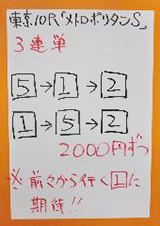 東京10R「メトロポリタンS」
3連単
5→1→2
1→5→2
2000円ずつ
※前々から行く1に
期待!!